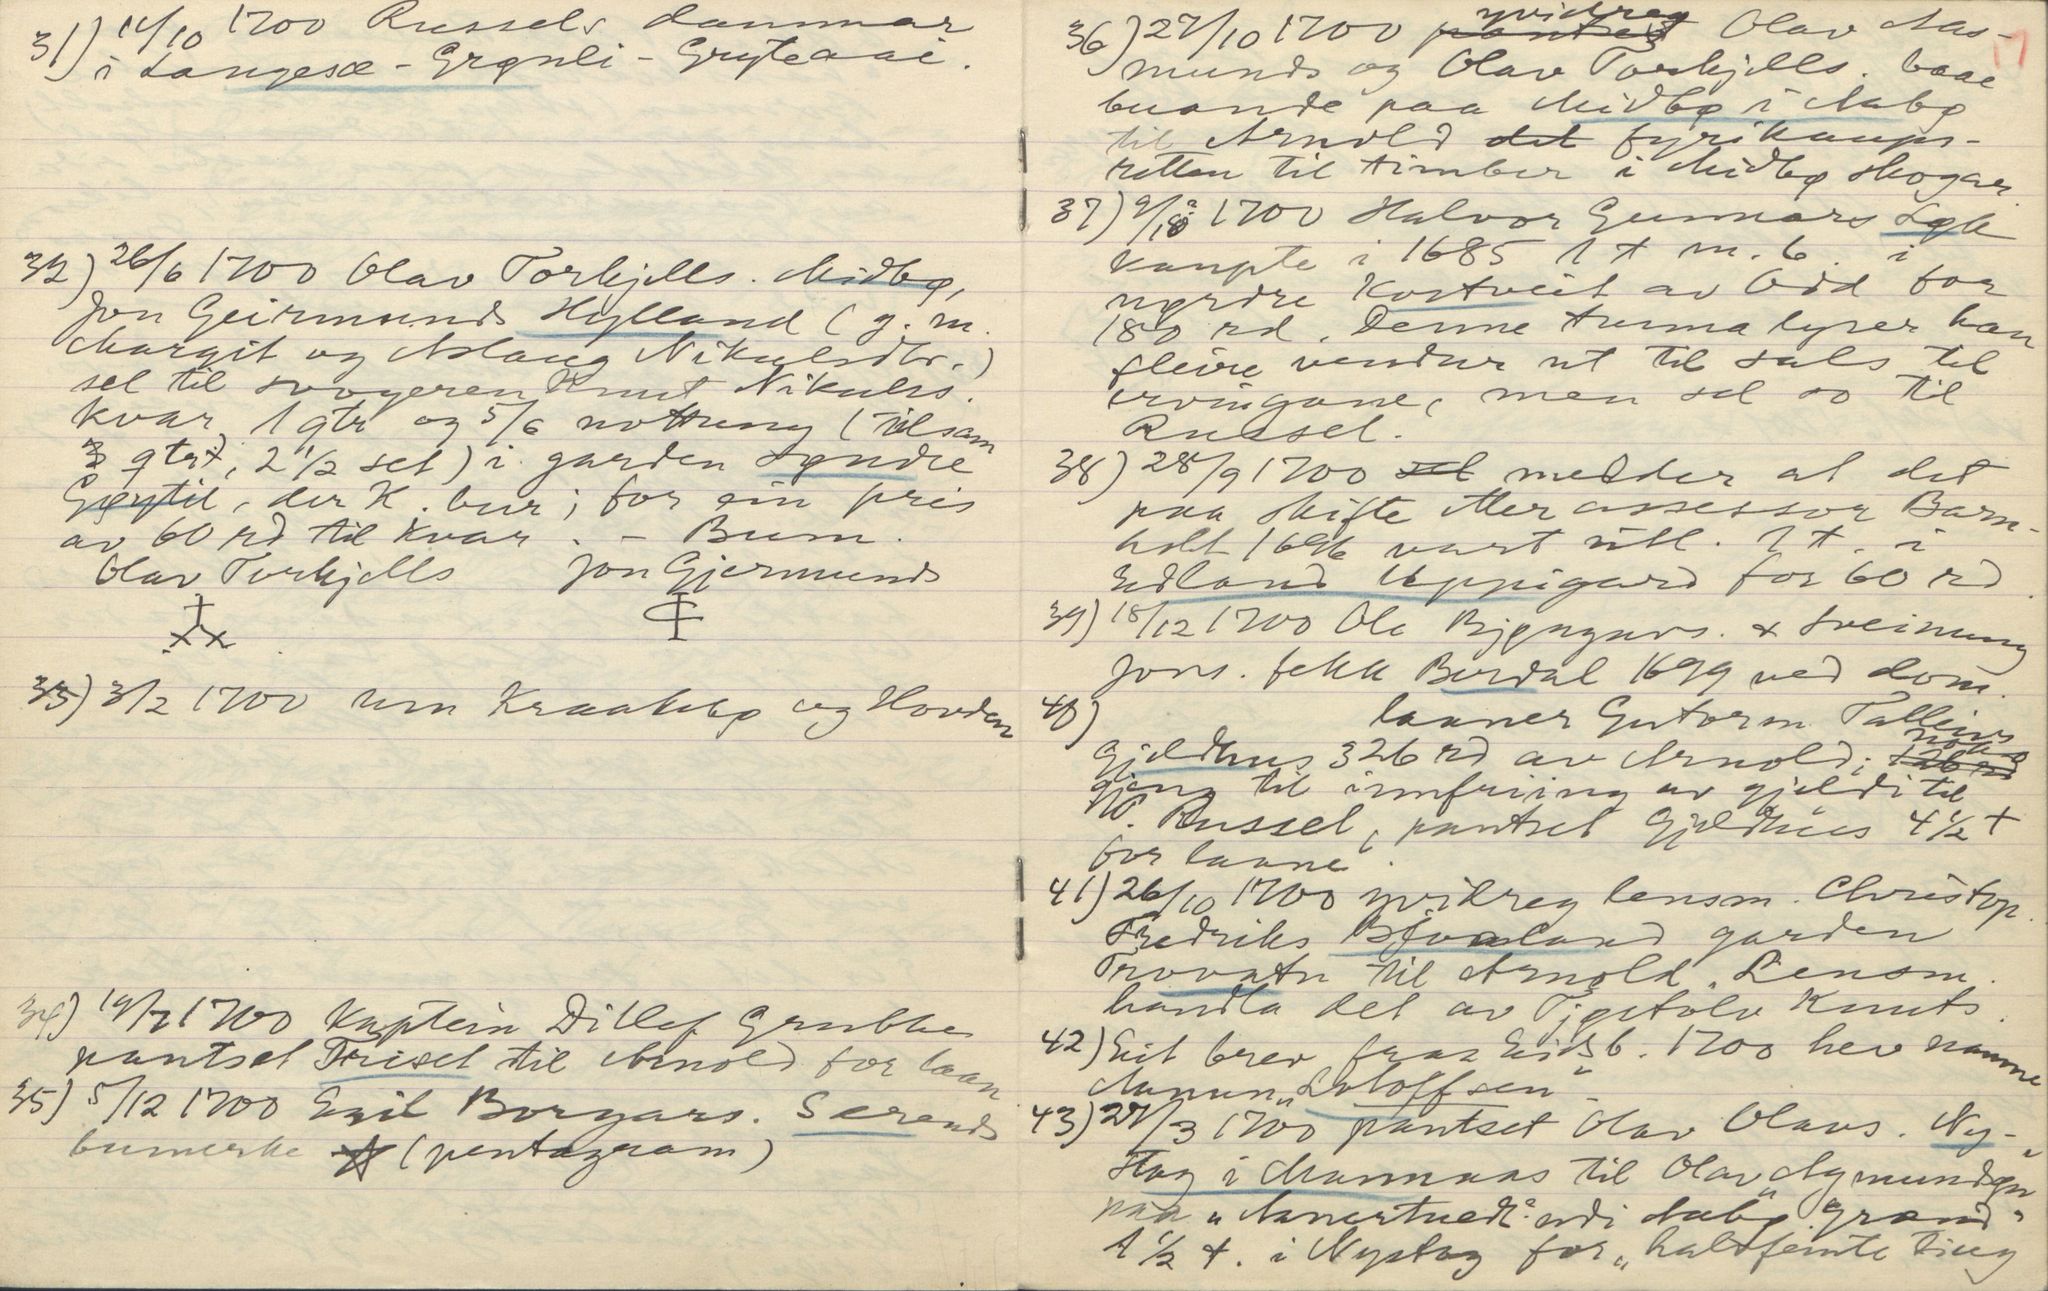 31) 14/10 1700 Russels dammar
i Langesæ - Grønli - Gryteaai.
32) 26/6 1700 Olav Torkjells. Midbø,
Jon Geirmunds Hylland (g. m.
Margit og Aslaug Nikulsdtr.)
sel til svogeren Knut Nikuls.
kvar 1 qtr og 5/6 nottung (tilsam
3 qtr, 2 1/2 set) i garden Syndre
Gjøytil, der K. bur; for ein pris
av 60 rd til kvar. - Bum.
Olav Torkjells Jon Gjermunds
33) 3/2 1700 um Kraakebø og Hovden
34) 19/7 1700 Kaptein Ditlef Grubbe
pantset Triset til Arnold for laan
35) 5/12 1700 Egil Borgars. Særends
bumerke (pentagram)
17
36) 27/10 1700 pantset yvidreg Olav Aas-
munds og Olav Torkjells. baae
buande paa Midbø i Aabø
til Arnold det fyrikaups-
retten til timber i Midbø skogar.
37) 9/12 1700 Halvor Gunnars Løk
kaupte i 1685 1 t m. b. i
nørdre Kostveit av Odd for
180 rd. Denne tunna lyser han
fleire vendur ut til sals til
ervingane, men sel so til
Russel.
38) 28/9 1700 sel melder at det
paa skifte etter assessor Barn-
holt 1696 vart utl. 1 t. i
Edland Uppigard for 60 rd.
39) 18/12 1700 Ole Bjørgurs. & Sveinung
Jons. fekk Berdal 1699 ved dom.
40) laaner Gutorm Talleivs
Gjeldhus 326 rd av Arnold; noko
gjeng til innfriing av gjeldi til
P. Russel, pantset Gjeldhus 4 1/2 t
for laane.
41) 26/10 1700 yvidreg lensm. Christop.
Fredriks Bjaaland garden
Trovatn til Arnold. Lensm.
handla det av Tjøstolv Knuts.
42) Eit brev fraa Eidsb. 1700 hev namne
Anun "Loloffsen".
43) 27/3 1700 pantset Olav Olavs. Ny-
stog i Mannaas til Olav "Aamundsøn"
paa "Aanertuedt" udi Aabø "grænd"
1 1/2 t. i Nystog for "halvfemte tiug